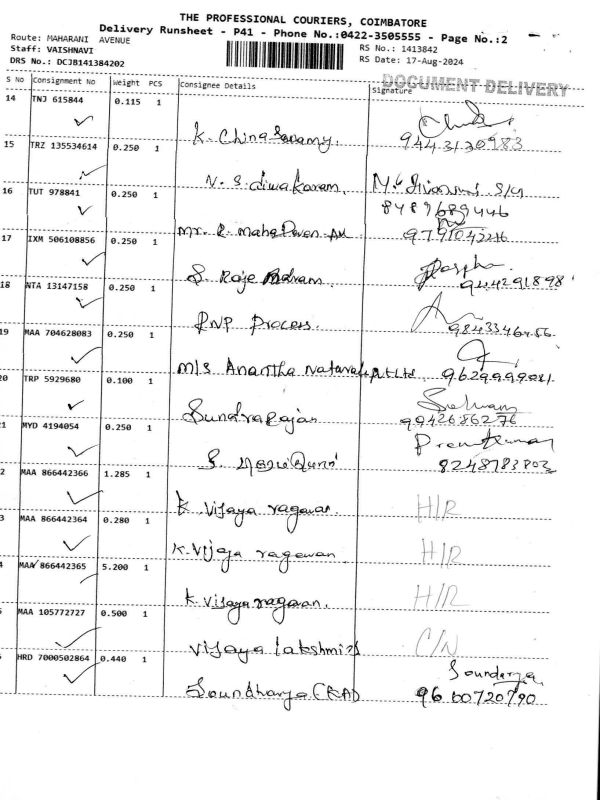 THE PROFESSIONAL COURIERS, COIMBATORE
Delivery Runsheet - P41 - Phone No.:0422-3505555 - Page No.:2
Route: MAHARANI AVENUE
Staff: VAISHNAVI
RS No.: 1413842
DRS No.: DCJB141384202
RS Date: 17-Aug-2024
DOCUMENT DELIVERY
S No Consignment No Weight PCS Consignee Details Signature
14 TNJ 615844 0.115 1
K. China Samy. 9443130983
15 TRZ 135534614 0.250 1
N. S. diwakaram.
16 TUT 978841 0.250 1
8489689446
Mr. R. mahaDevan
17 IXM 506108856 0.250 1
S. Raje
18 NTA 13147158 0.250 1
RNP Process.
19 MAA 704628083 0.250 1
M/S Anantha
20 TRP 5929680 0.100 1
Selvam
Sundrarajan 9942686276
21 MYD 4194054 0.250 1
Premkumar
S. 8248783803
2 MAA 866442366 1.285 1
K. Vijaya ragavan. H/R
3 MAA 866442364 0.280 1
K. Vijaya ragavan H/R
4 MAA 866442365 5.200 1
K. Vijaya ragavan. H/R
5 MAA 105772727 0.500 1
Vijaya lakshmi C/N
HRD 7000502864 0.440 1
Soundarya
Soundharya (RAD 9600720790